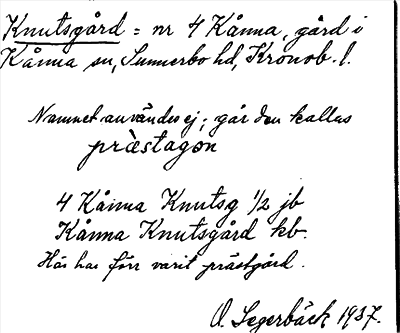 Knutsgård = nr 4 Kånna, gård i
Kånna sn, Sunnerbo hd, Kronob. l.
Namnet användes ej; går den kallas
prèstagon
4 Kånna Knutsg 1/2 jb
Kånna Knutsgård kb.
Här har förr varit prästgård.
O. Segerbäck 1937.